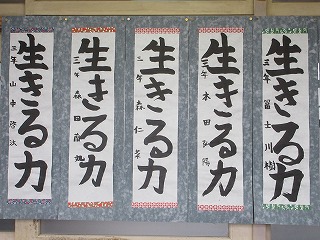 生きる力
三年 冨士川樹
生きる力
三年 木田弘陽
生きる力
三年 森仁
生きる力
三年 森田
生きる力
三年 山中